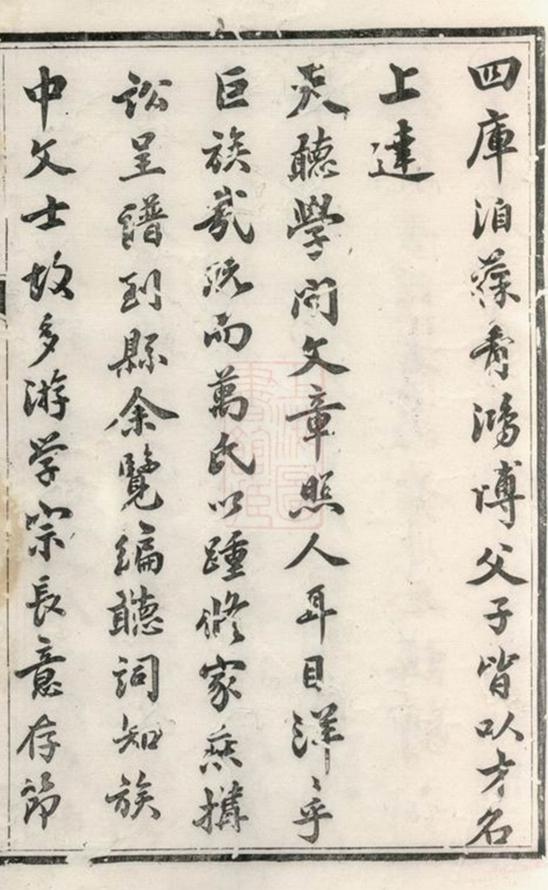 四庫洎藻青鴻博父子皆以才名
上達
天聽學問文章照人耳目洋〻乎
巨族哉既而萬氏以踵修家乘搆
訟呈譜到縣余覽編聽詞知族
中文士故多游学宗長意存節